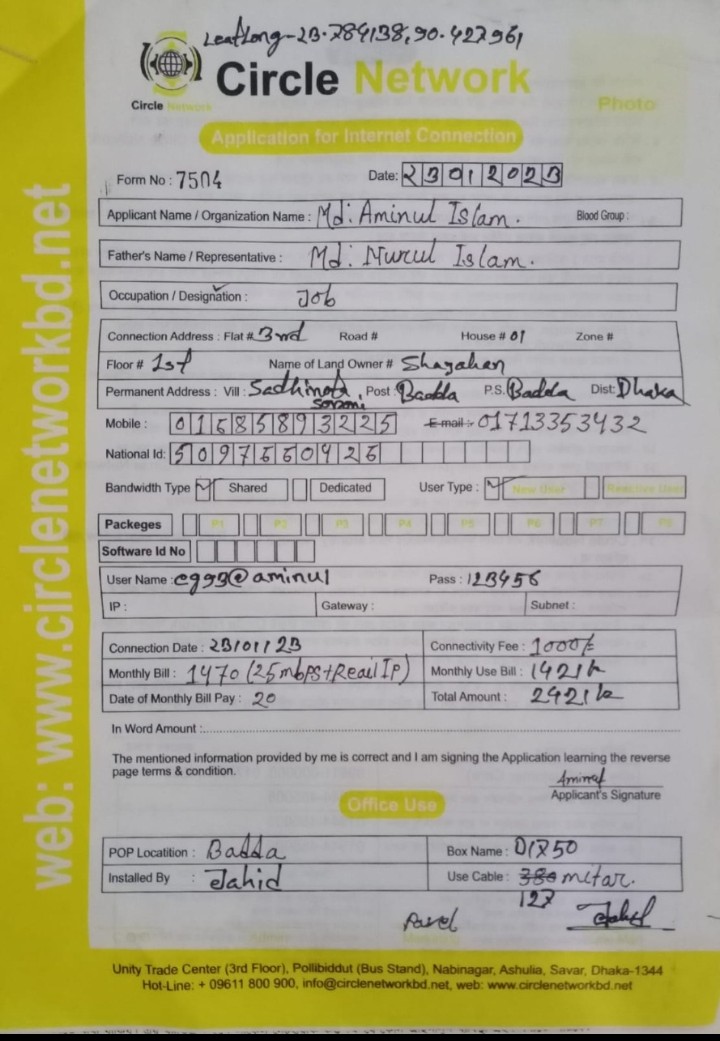 Leatlong-23.784138,90.427961
Circle Network
Circle Network
Photo
Application for Internet Connection
Form No : 7504 Date: 23012023
Applicant Name / Organization Name : Md: Aminul Islam. Blood Group :
Father's Name / Representative : Md: Nurul Islam.
Occupation / Designation : Job
Connection Address : Flat # 3rd Road # House # 01 Zone #
Floor # 1st Name of Land Owner # Shagahan
Permanent Address : Vill : Sadhinota Post : Badda P.S. Badda Dist: Dhaka
Soroni
Mobile : 01685893225 E-mail : 01713353432
National Id: 5097560426
Bandwidth Type Shared Dedicated User Type : New User Reactive User
Packeges P1 P2 P3 P4 P5 P6 P7 P8
Software Id No
User Name : cgg3@aminul Pass : 123456
IP : Gateway : Subnet :
Connection Date : 23/01/23 Connectivity Fee : 1000/-
Monthly Bill : 1470 (25mbps+Reail IP) Monthly Use Bill : 1421
Date of Monthly Bill Pay : 20 Total Amount : 2421
In Word Amount :
The mentioned information provided by me is correct and I am signing the Application learning the reverse
page terms & condition.
Aminul
Applicant's Signature
Office Use
POP Locatition : Badda Box Name : DIX50
Installed By : Jahid Use Cable : 380 mitar.
127
Pavel
Unity Trade Center (3rd Floor), Pollibiddut (Bus Stand), Nabinagar, Ashulia, Savar, Dhaka-1344
Hot-Line: + 09611 800 900, info@circlenetworkbd.net, web: www.circlenetworkbd.net
web: www.circlenetworkbd.net